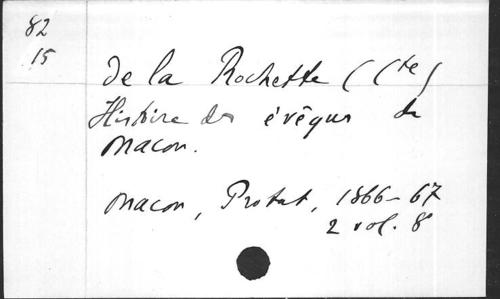 82
15
de la Rochette (Cte)
Histoire des évêques de
Macon.
Macon, Protat, 1866-67
2 vol. 8°